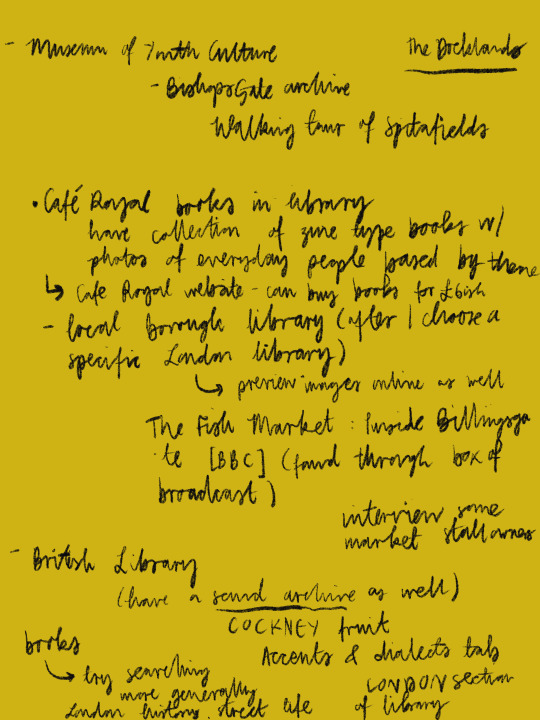 - Museum of Youth Culture
The Docklands
- BishopsGate archive
Walking tour of spitafields
• Café Royal books in library
have collection of zine type books w/
photos of everyday people based by theme
↳ Cafe Royal website - can buy books for £6ish
- local borough library (after I choose a
specific London library)
↳ preview images online as well
The Fish Market : Inside Billingsga
te [BBC] (found through box of
broadcast)
interview some
market stall owners
- British Library
(have a sound archive as well)
COCKNEY fruit
books
Accents & dialects tab
↳ try searching
LONDON section
more generally
of library
London history, street life